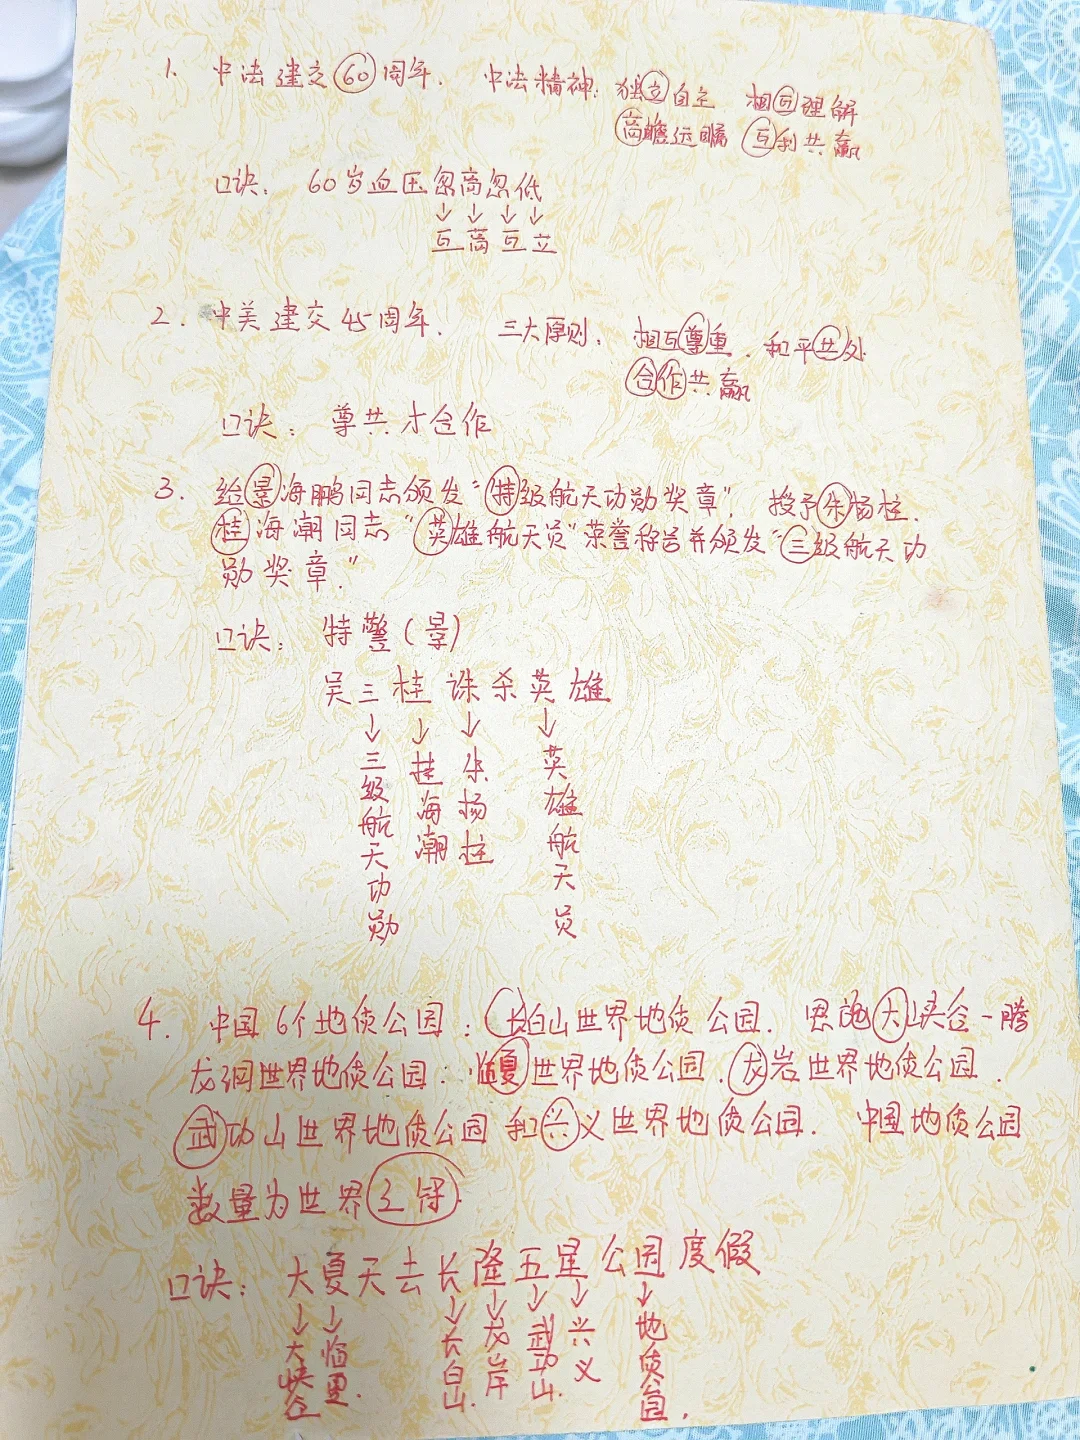 1. 中法建立60周年. 中法精神: 独立自主 相互理解
高瞻远瞩 互利共赢
口诀: 60岁血压忽高忽低
↓ ↓ ↓ ↓
互 高 互 立
2. 中美建交45周年. 三大原则: 相互尊重、和平共处
合作共赢
口诀: 尊共才合作
3. 给景海鹏同志颁发"特级航天功勋奖章", 授予朱杨柱.
桂海潮同志"英雄航天员"荣誉称号并颁发"三级航天功
勋奖章."
口诀: 特警(景)
吴三桂诛杀英雄
↓ ↓ ↓ ↓
三级航天功勋
桂海潮
朱杨柱
英雄航天员
4. 中国6个地质公园: 长白山世界地质公园. 恩施大峡谷-腾
龙洞世界地质公园: 临夏世界地质公园、龙岩世界地质公园.
武功山世界地质公园和兴义世界地质公园. 中国地质公园
数量为世界之得.
口诀: 大夏天去长隆五星公园度假
↓ ↓ ↓ ↓ ↓ ↓ ↓
大峡谷
临夏.
长白山.
龙岸
武功山.
兴义
地质公园.